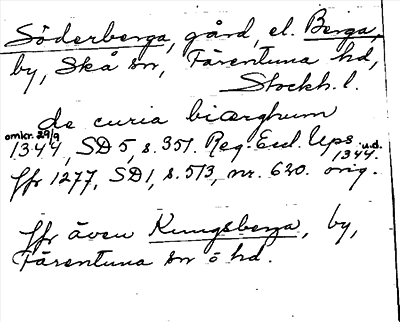 Söderberga, gård, el. Berga,
by, Skå sn, Färentuna hd,
Stockh. l.
de curia biærghum
omkr. 29/9 u.d.
1344, SD 5, s. 351. Reg. Eccl. Ups. 1344.
Jfr 1277, SD 1, s. 513, nr. 620. orig.
Jfr även Kungsberga, by,
Färentuna sn o hd.